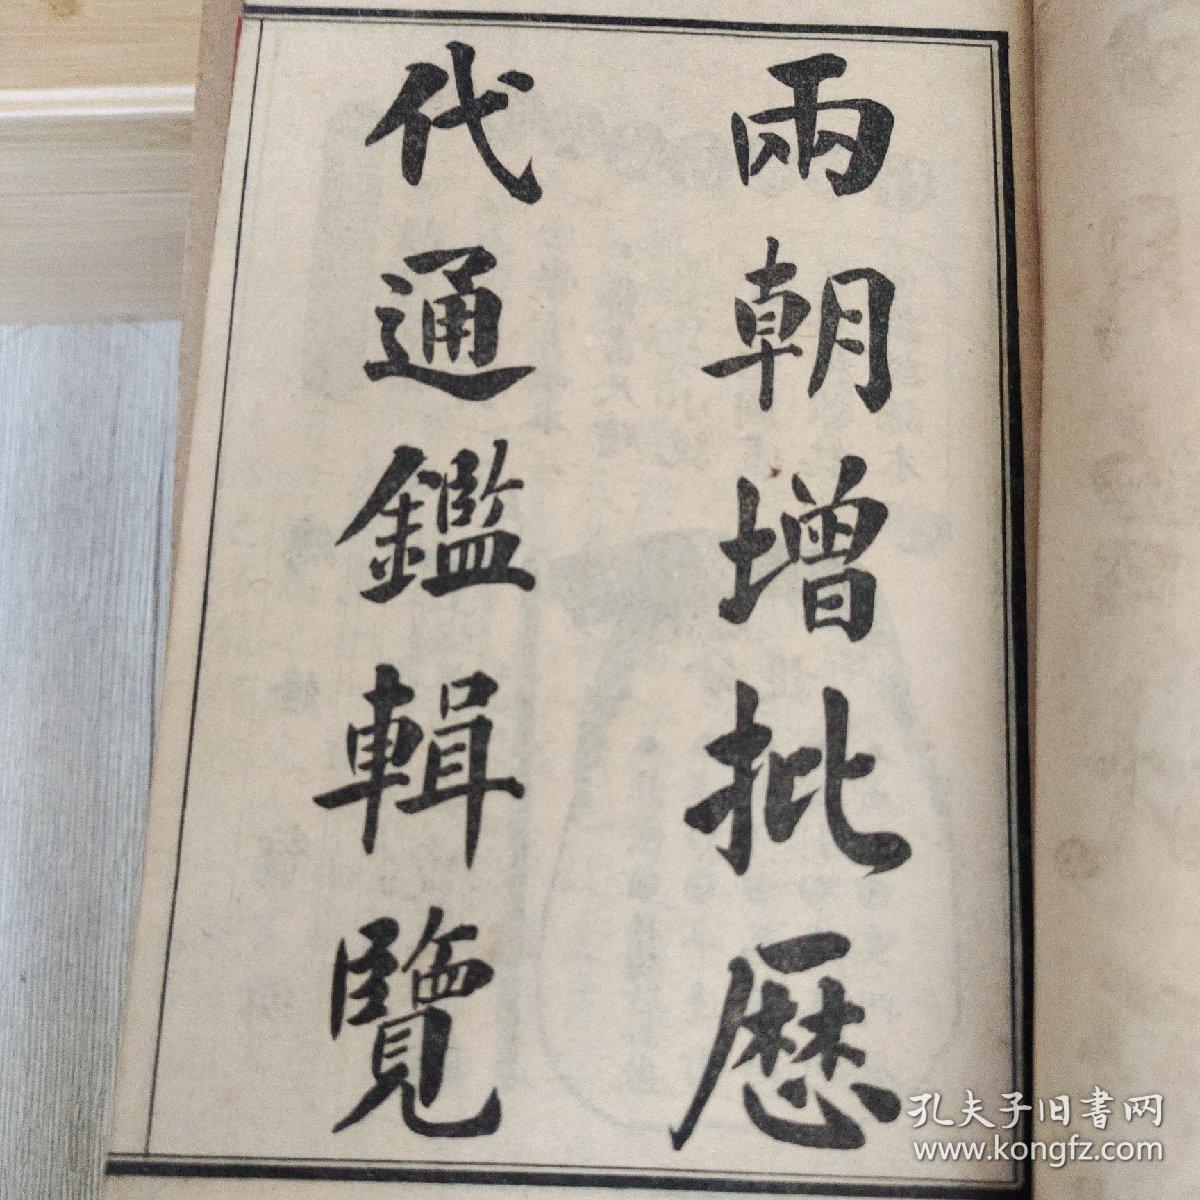 兩朝增批歴
代通鑑輯覽
孔夫子旧書网
www.kongfz.com